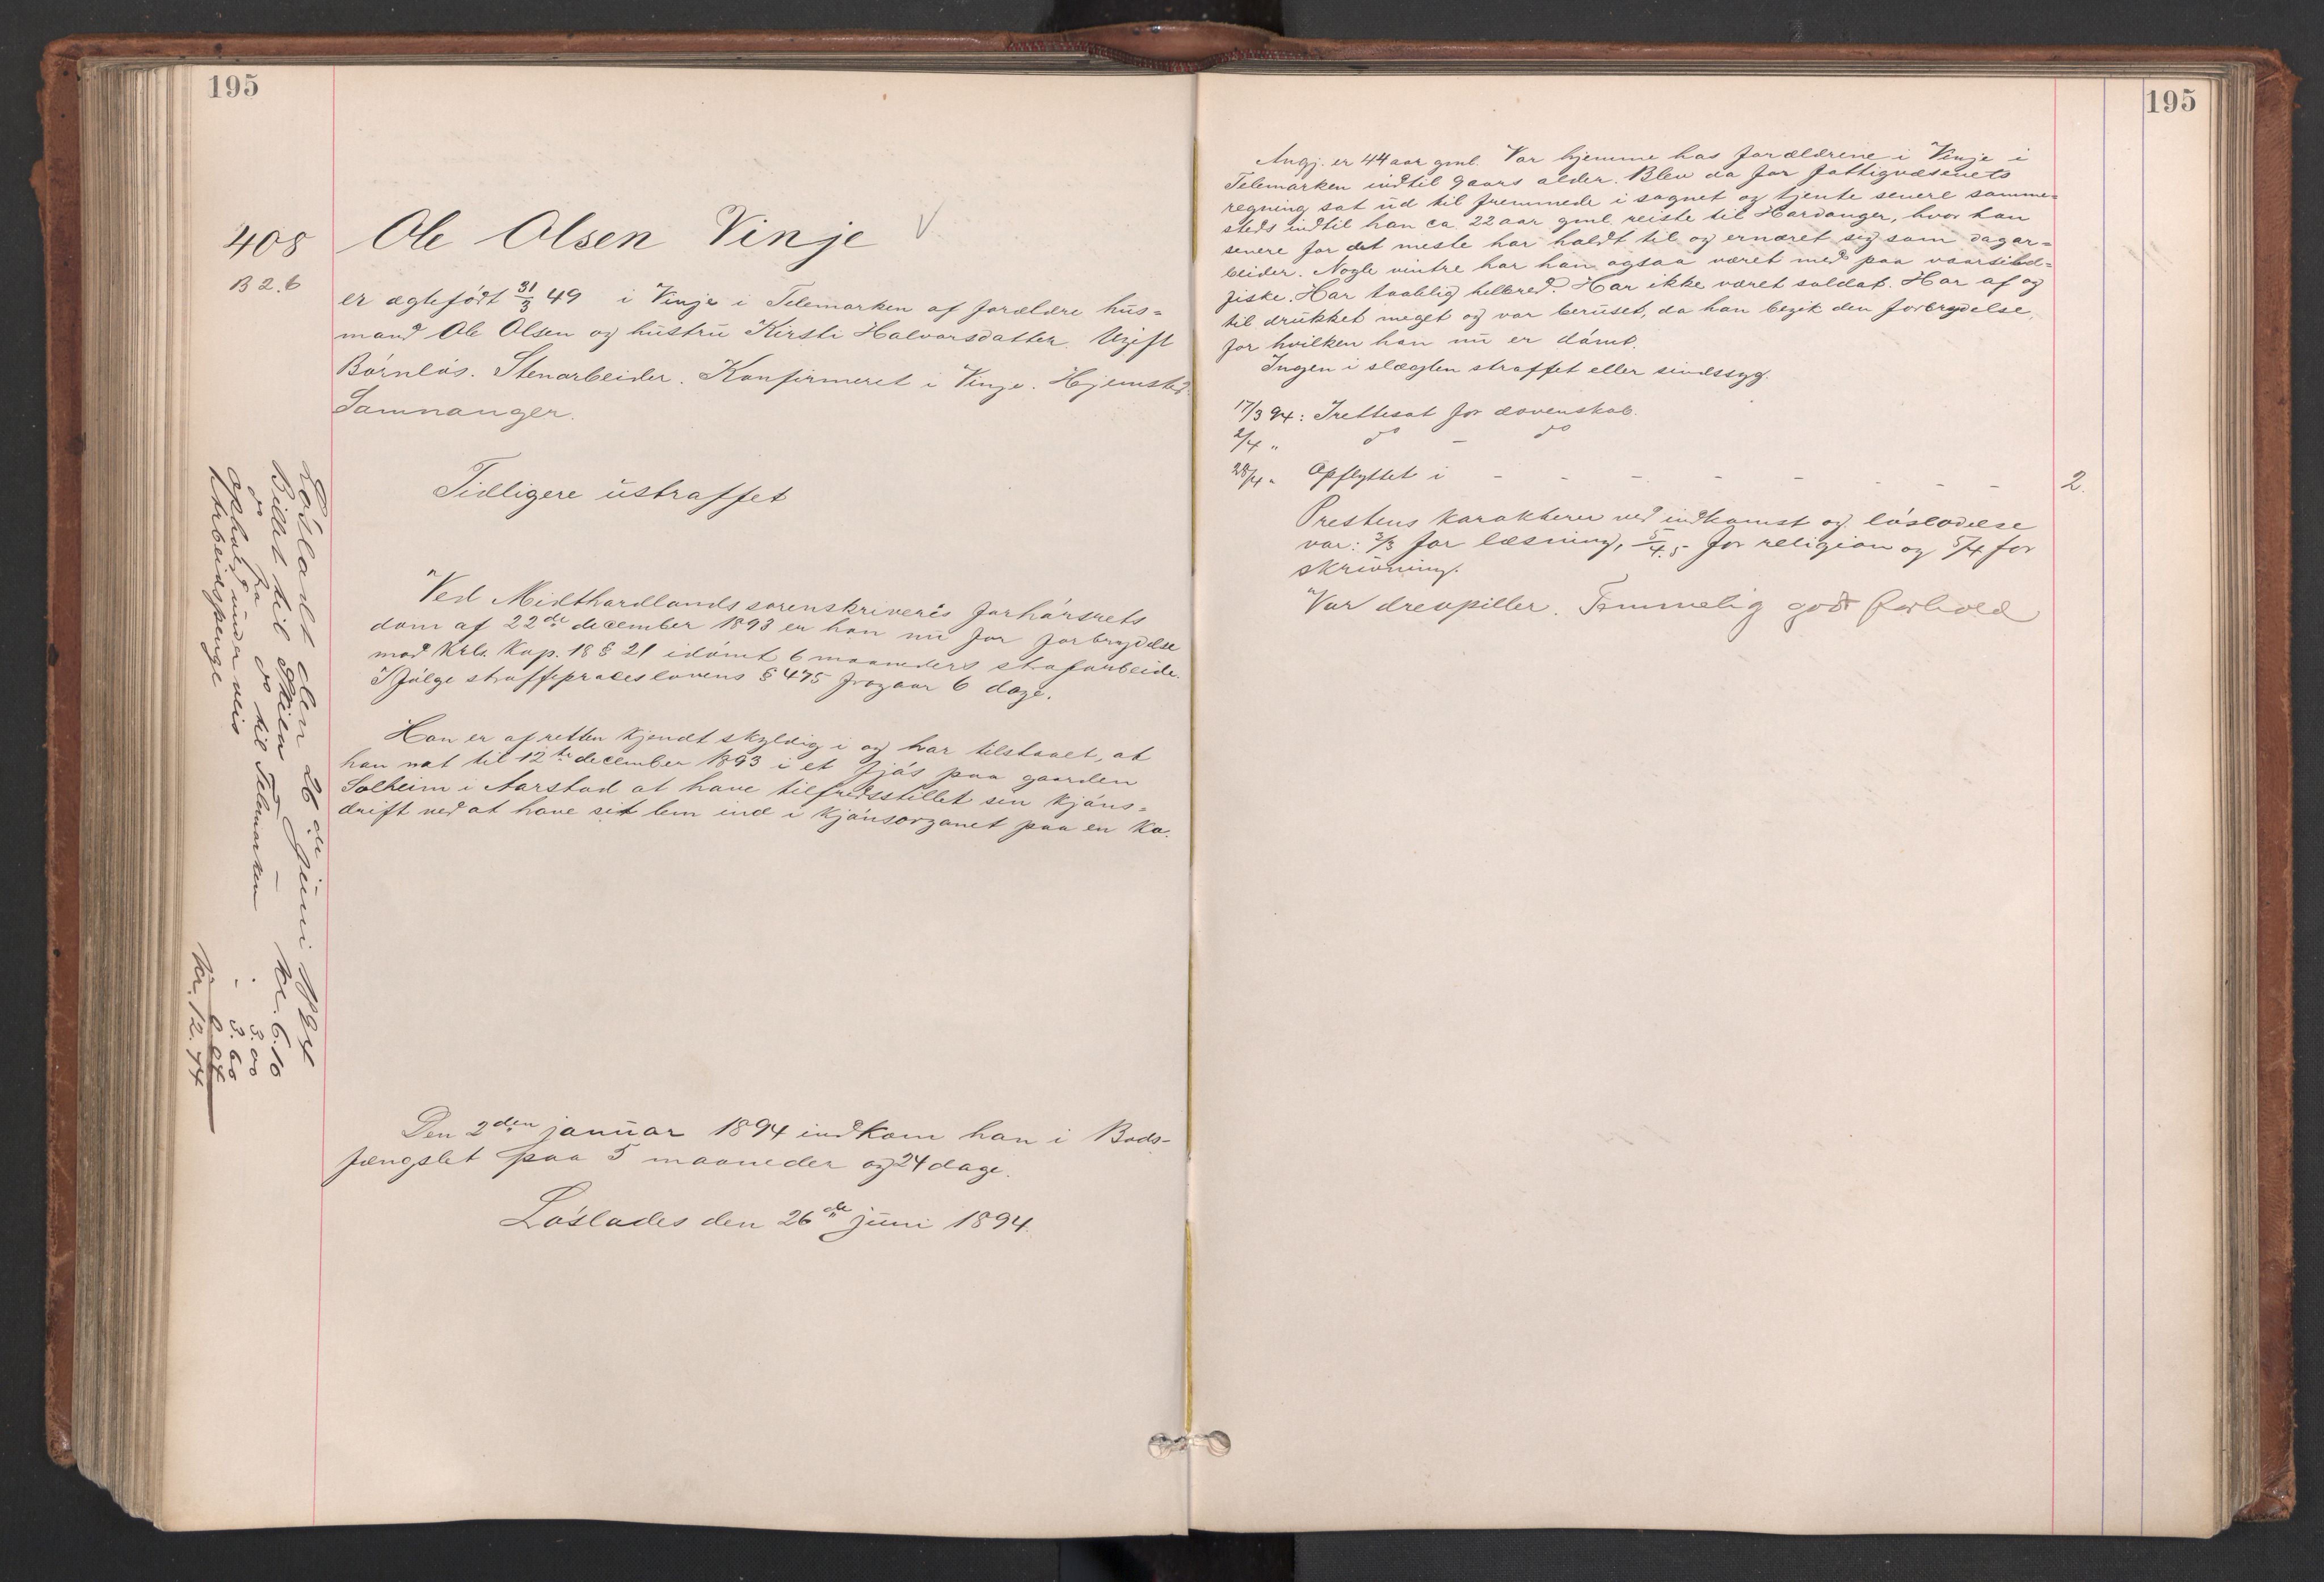 195
408 Ole Olsen Vinje V
B 2.6
er ægtefødt 31/3 49 i Vinje i Telemarken af forældre hus=
mand Ole Olsen og hustru Kirsti Halvorsdatter. Ugift
Børnløs. Stenarbeider. Konfirmeret i Vinje. Hjemsted
Samnanger.
Tidligere ustraffet
Ved Midthardlands sorenskriveris forhørsrets
dom af 22de december 1893 er han nu for forbrydelse
mod Krl. Kap. 18 § 21 idømt 6 maaneders strafarbeide.
Ifølge straffeproceslovens § 475 fragaar 6 dage.
Han er af retten kjendt skyldig i og har tilstaaet, at
han nat til 12te december 1893 i et fjøs paa gaarden
Solheim i Aarstad at have tilfredsstillet sin kjøns=
drift ved at have sit lem ind i kjønsorganet paa en ko.
Den 2den januar 1894 indkom han i Bods-
fængslet paa 5 maaneder og 24 dage.
Løslades den 26de juni 1894.
Løsladt den 26de juni 1894
Billet til Skien - kr. 6.10
do fra do til Telemarken . 3.00
ophold underveis - 3.60
Arbeidspenge
kr. 12.74
195
Angj. er 44 aar gml. Var hjemme hos forældrene i Vinje i
Telemarken indtil 9 aars alder. Blev da for fattigvæsenets
regning sat ud til fremmede i sognet og tjente senere samme=
steds indtil han ca 22 aar gml reiste til Hardanger, hvor han
senere for det meste har holdt til og ernæret sig som dagar=
beider. Nogle vintre har han ogsaa været med paa vaarsild=
fiske. Har taalelig helbred. Har ikke været soldat. Har af og
til drukket meget og var beruset, da han begik den forbrydelse,
for hvilken han nu er dømt.
Ingen i slægten straffet eller sindssyg.
17/3 94: Irettesat for dovenskab.
2/4 " do - do
28/4 " Opflyttet i - - - - - - - 2.
Prestens karakterer ved indkomst og løsladelse
var: 3/3 for læsning, 5/4.5 for religion og 5/4 for
skrivning.
Var drevpiller. Temmelig godt forhold